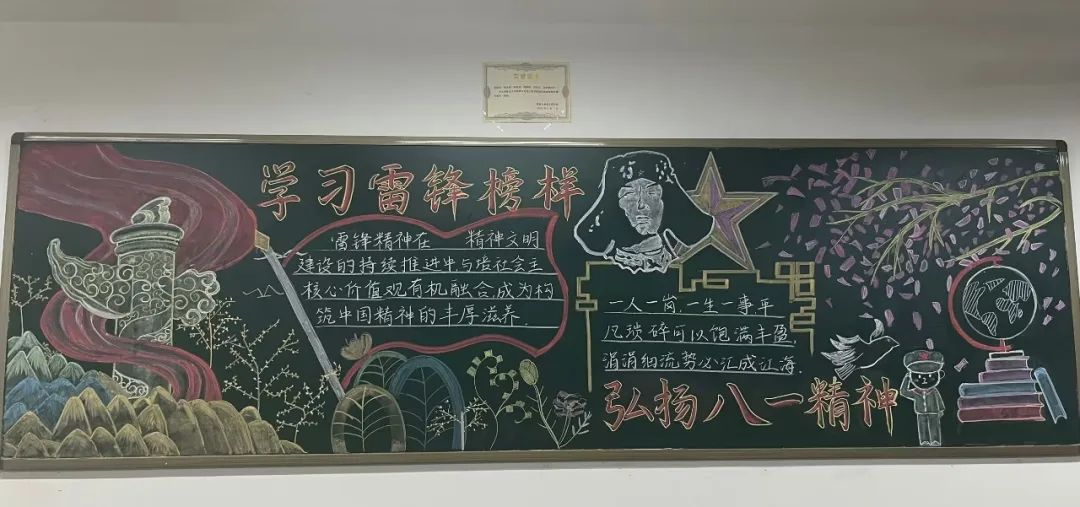 学习雷锋榜样
雷锋精神在 精神文明
建设的持续推进中与培社会主
核心价值观有机融合成为构
筑中国精神的丰厚滋养.
一人一岗,一生一事平
凡琐碎可以饱满丰盈,
涓涓细流势必汇成江海.
弘扬八一精神